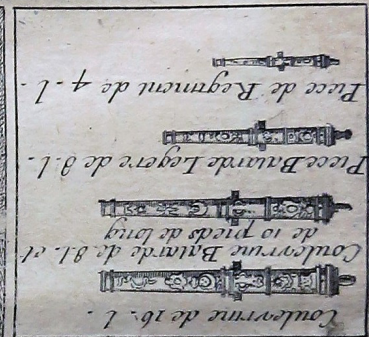 Coulevrine de 16. l.
Coulevrine Batarde de 8 l. et
de 10 pieds de long
Piece Batarde Legere de 8. l.
Piece de Regiment de 4. l.